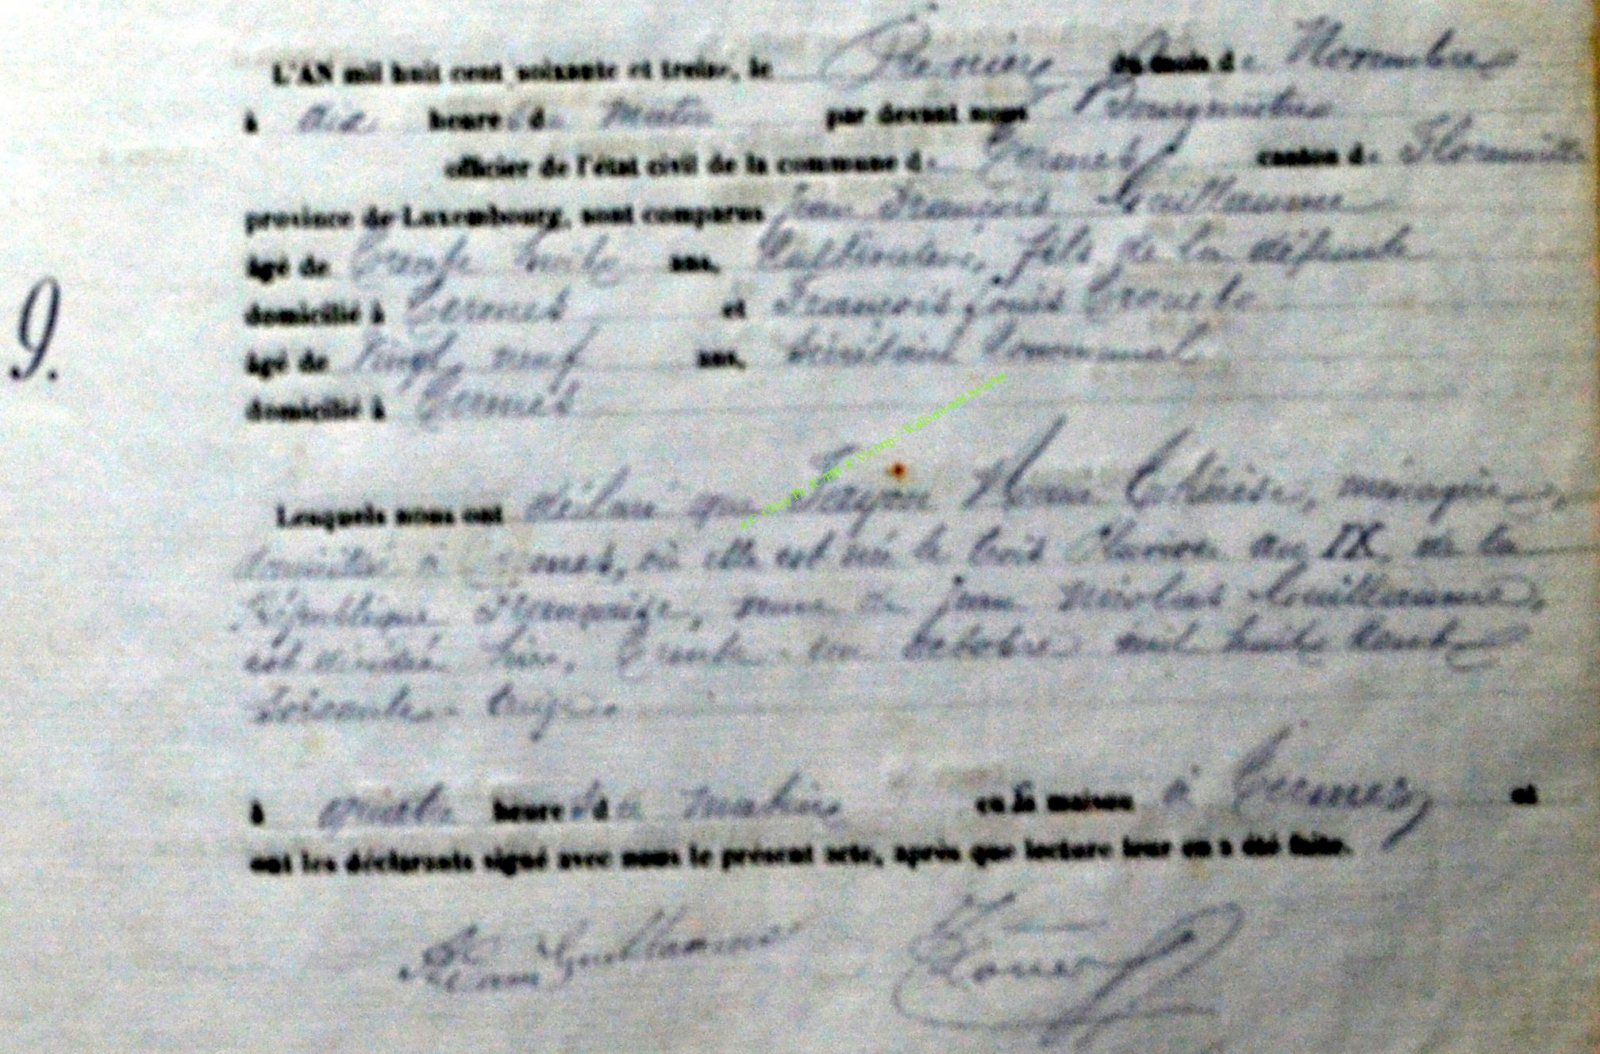 L'AN mil huit cent soixante et treize, le Premier du mois de Novembre
à dix heures du matin par devant nous Bourgmestre
officier de l'état civil de la commune de Termes canton de Florenville
province de Luxembourg, sont comparus Jean François Guillaume
âgé de Trente huit ans, Cultivateur, fils de la défunte
domicilié à Termes et François Louis
âgé de Vingt neuf ans, Secrétaire Communal
domicilié à Termes
9.
Lesquels nous ont déclaré que Fayon Marie Cathérine, ménagère,
domiciliée à Termes, où elle est née le trois an IX de la
République Française, veuve de Jean Nicolas Guillaume,
est décédée hier, Trente-un Octobre mil huit cent
Soixante-treize.
à heures du matin en sa maison à Termes, et
ont les déclarants signé avec nous le présent acte, après que lecture leur en a été faite.
Guillaume